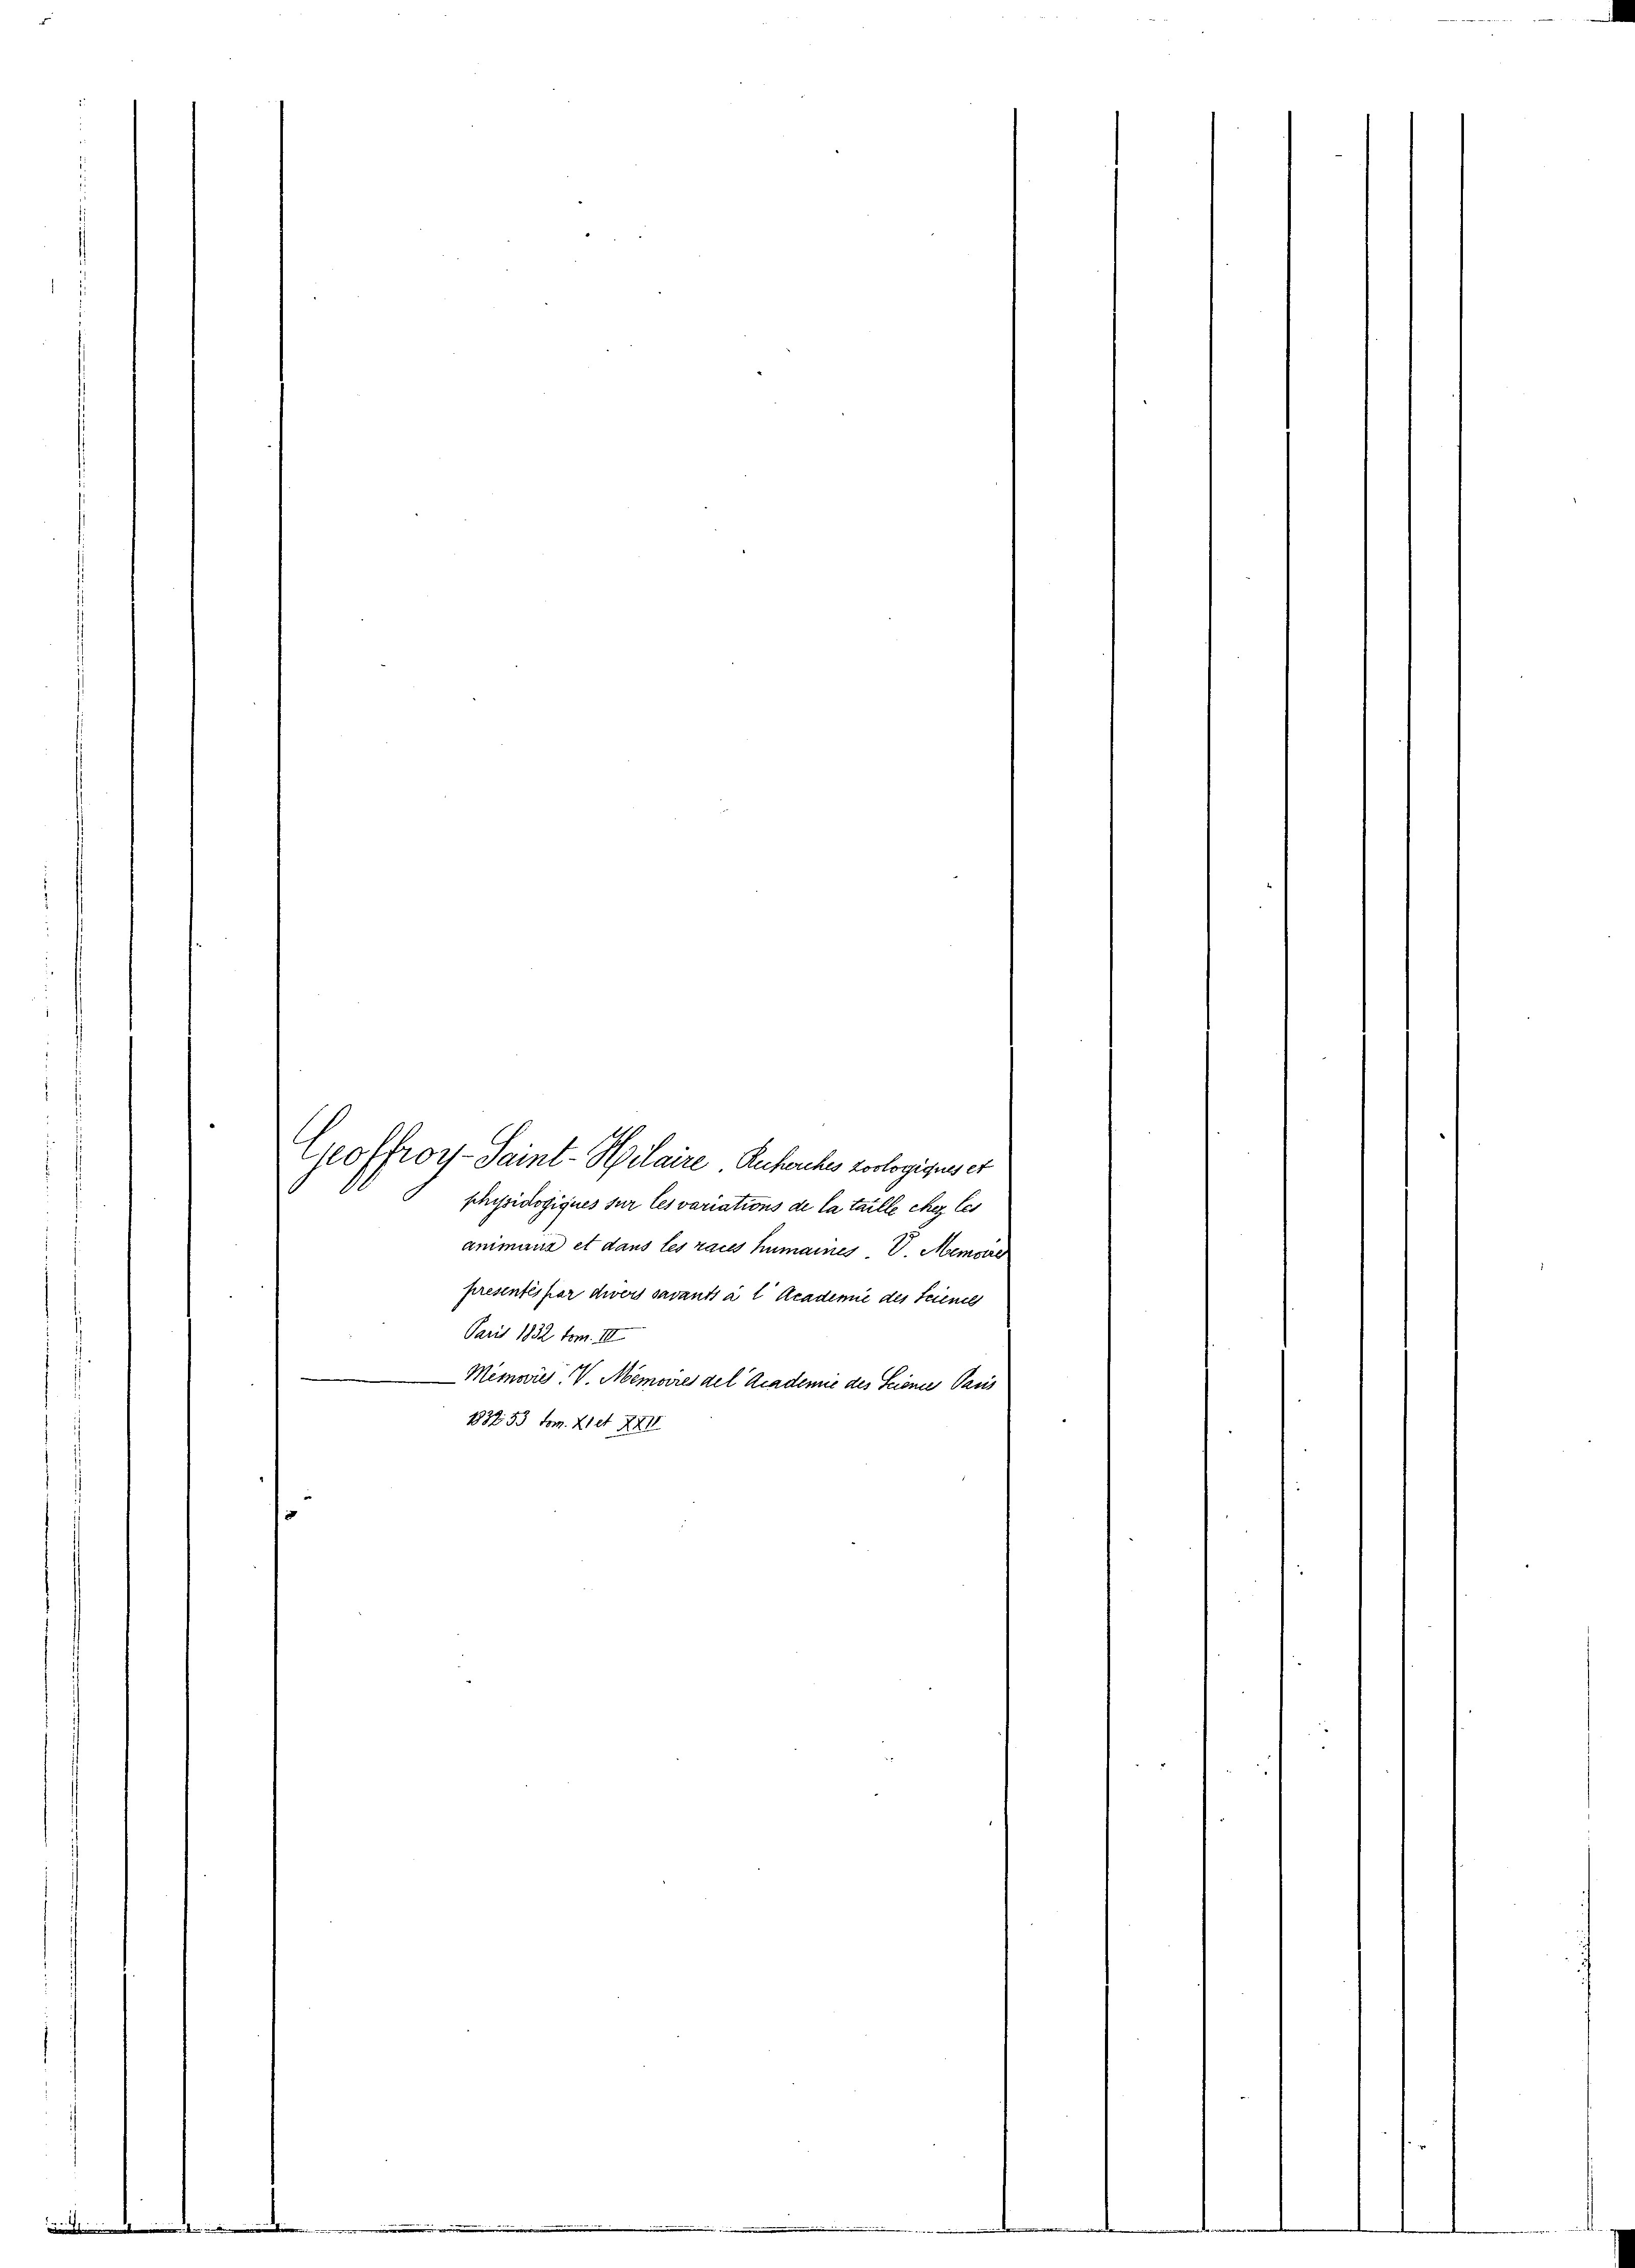 Geoffroy-Saint-Hilaire. Recherches zoologiques et
physiologiques sur les variations de la taille chez les
animaux et dans les races humaines. V. Memoires
presentés par divers savants à l'Academie des Sciences
Paris 1832 tom. III
— Mémoires. V. Mémoires del'Academie des Sciences Paris
1832-53 tom. XI et XXII